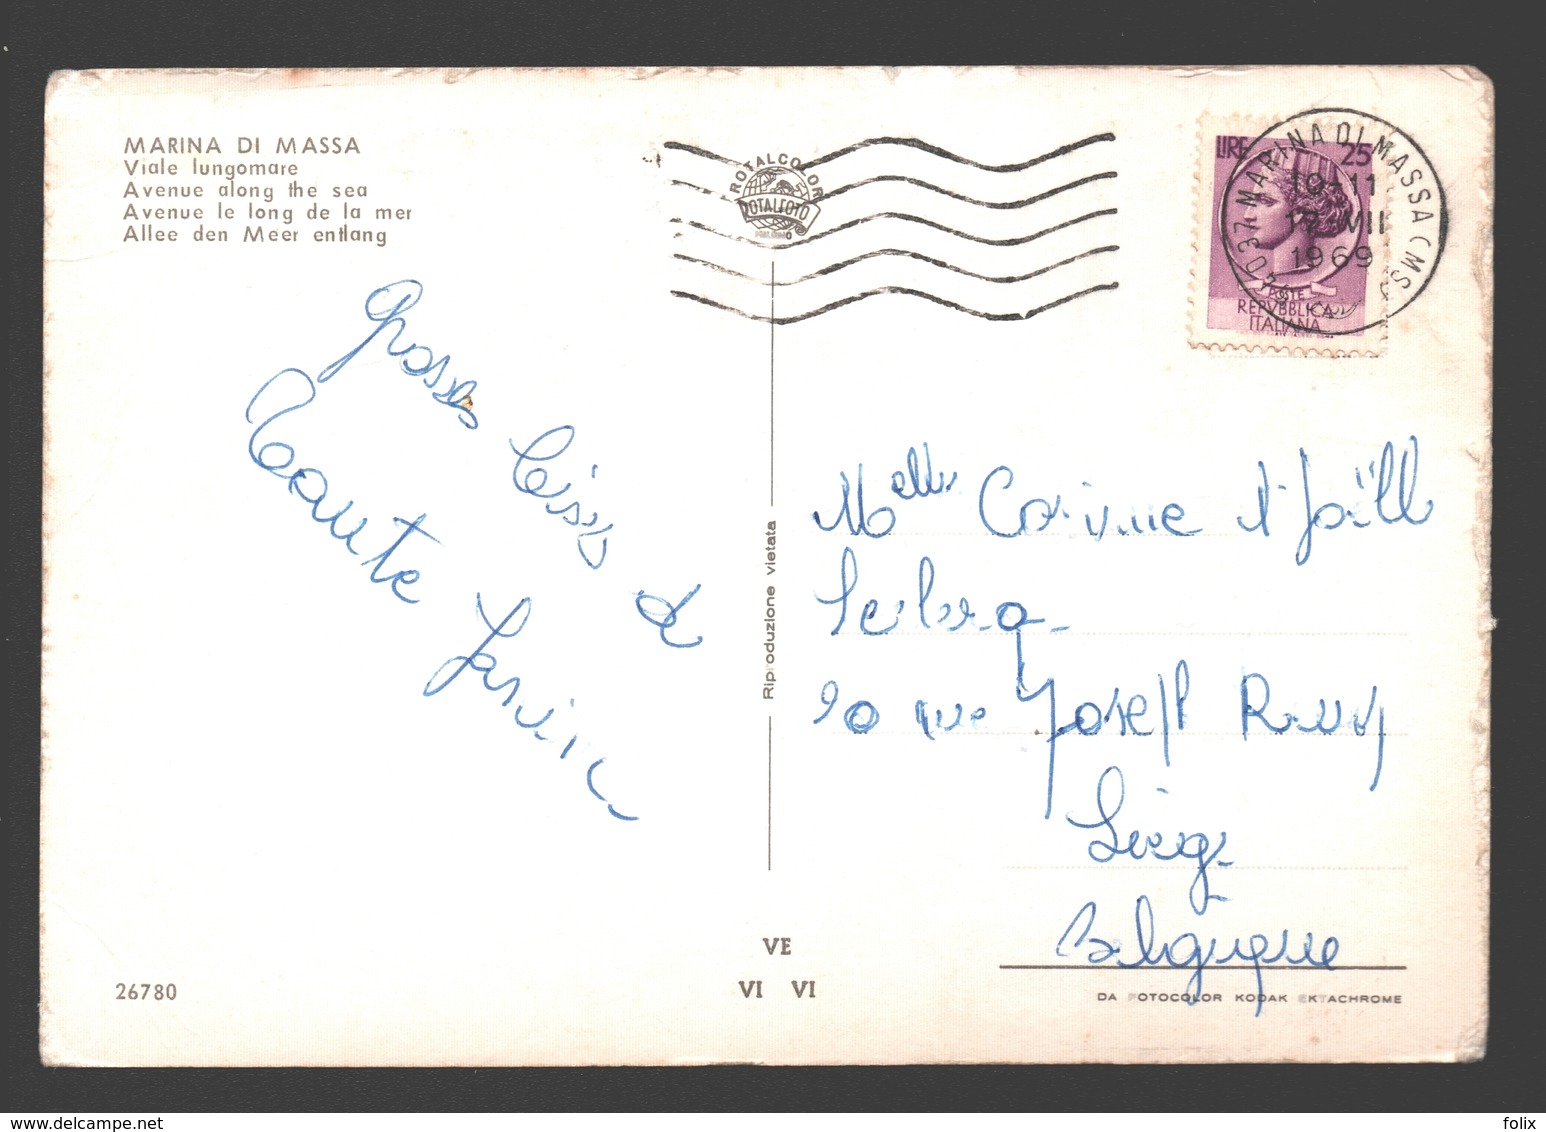 MARINA DI MASSA
Viale lungomare
Avenue along the sea
Avenue le long de la mer
Allee den Meer entlang
ROTALCOLOR
ROTALFOTO
LIRE 25
POSTE
REPVBBLICA
ITALIANA
MARINA DI MASSA (MS)
10-11
VII
1969
grosses bises de
Tante Janine
Melles Corinne et Joëlle
rue Joseph
Liège
Belgique
Riproduzione vietata
VE
VI VI
26780
DA FOTOCOLOR KODAK EKTACHROME
www.delcampe.net
folix